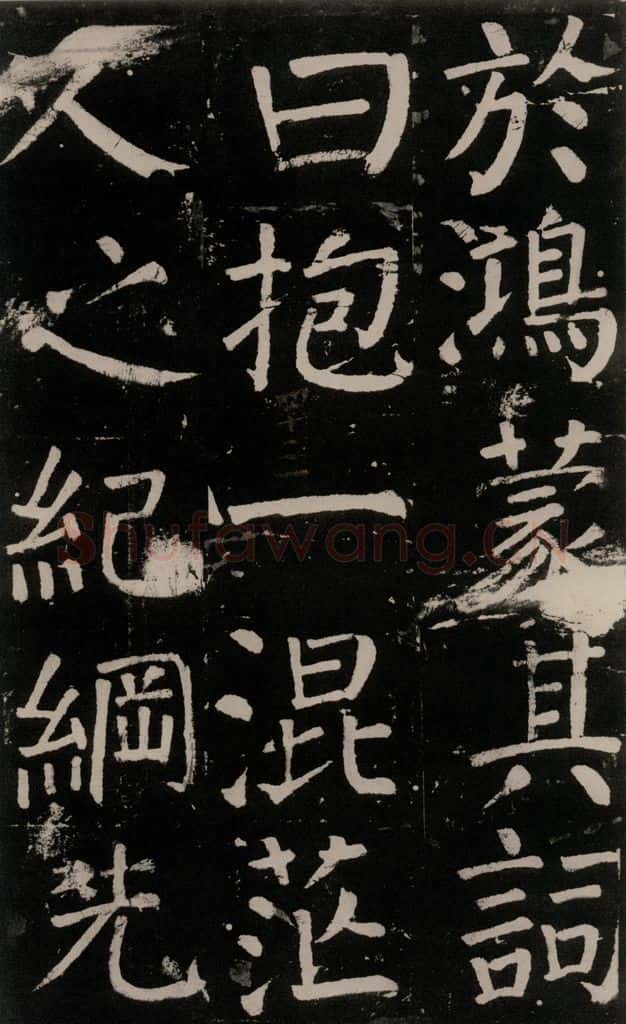 於鴻蒙其詞
曰抱一混茫
人之紀綱先
Shufawang.cn